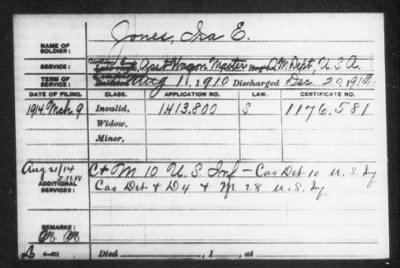 Jones, Ira E.
NAME OF SOLDIER:
SERVICE: Asst Wagon Master Q.M. Dept, U.S.A.
TERM OF SERVICE: Aug 1, 1910 Discharged Dec. 20, 1913.
DATE OF FILING. CLASS. APPLICATION NO. LAW. CERTIFICATE NO.
1914 Mch. 9 Invalid, 1413,800 S 1176,581
Widow,
Minor,
Aug 21/14 C + M 10 U.S. Inf - Cas Det 10 U.S. Inf
ADDITIONAL SERVICES: Cas Det + D 4 + M 28 U.S. Inf
REMARKS:
Died , 1 , at